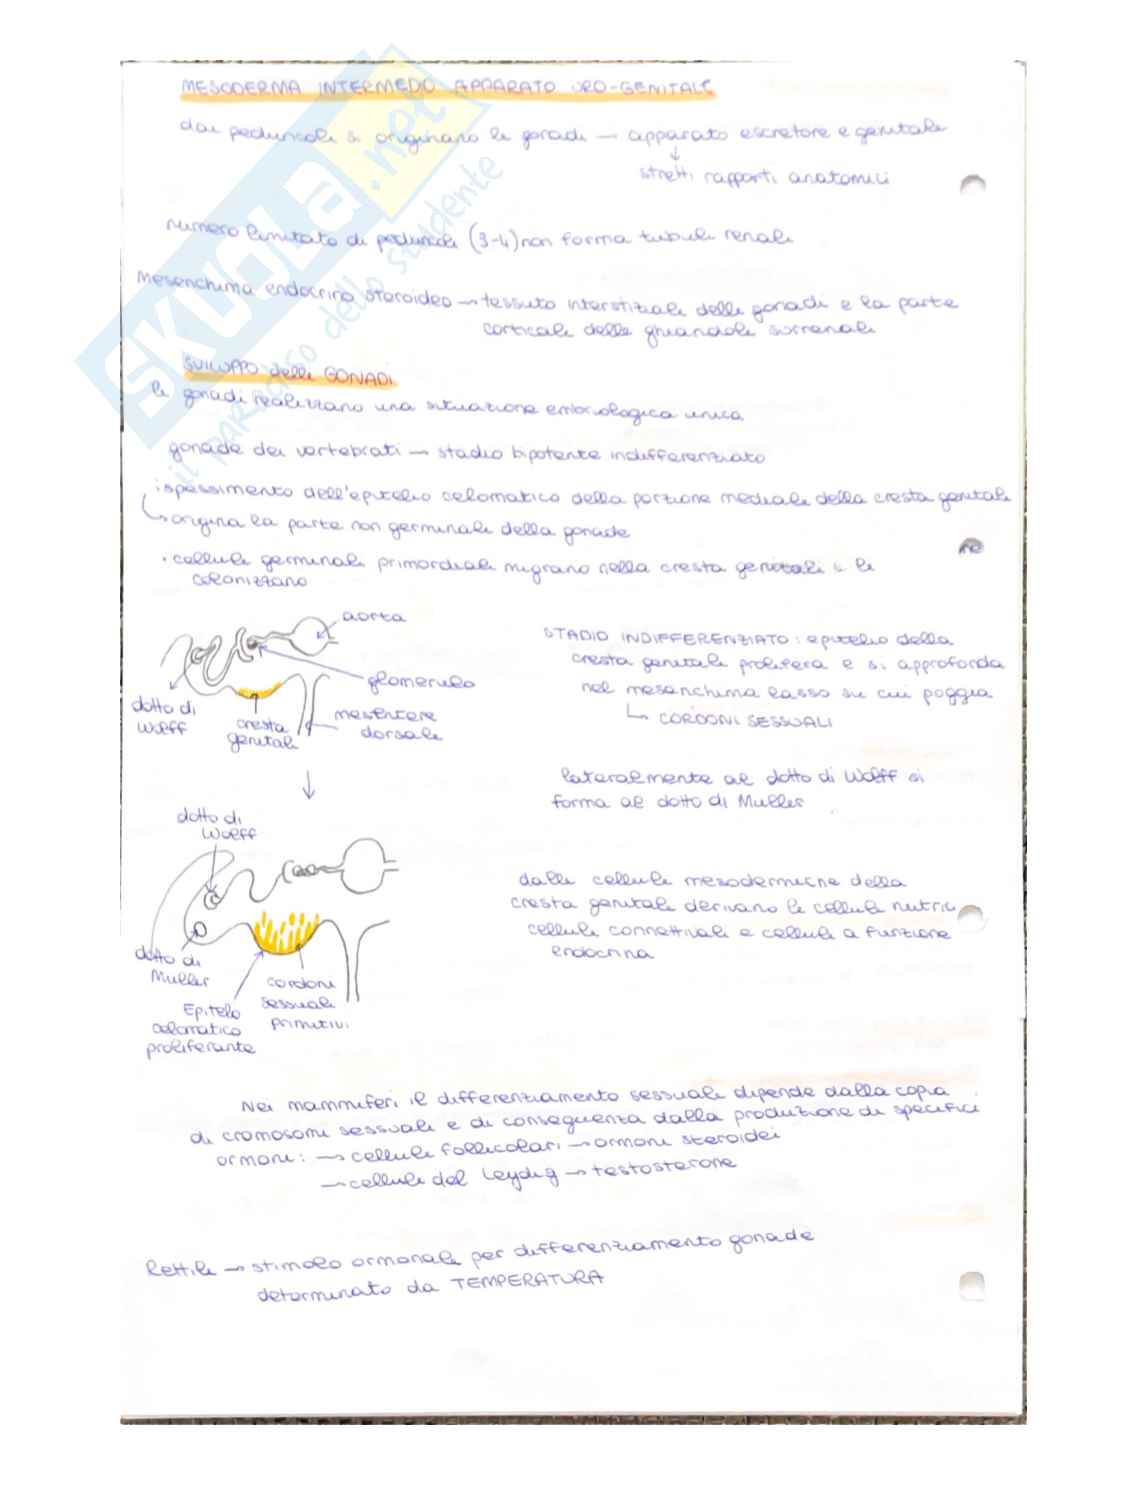 MESODERMA INTERMEDO APPARATO URO-GENITALE
dai peduncoli si originano le gonadi → apparato escretore e genitale
↓
stretti rapporti anatomici
numero limitato di peduncoli (3-4) non forma tubuli renali
Mesenchima endocrino steroideo → tessuto interstiziale delle gonadi e la parte
corticale delle ghiandole surrenali
SVILUPPO delle GONADI
le gonadi realizzano una situazione embriologica unica
gonade dei vertebrati → stadio bipotente indifferenziato
ispessimento dell'epitelio celomatico della porzione mediale della cresta genitale
↳ origina la parte non germinale della gonade
• cellule germinali primordiali migrano nella cresta genitale e le
colonizzano
aorta
glomerulo
dotto di
Wolff
cresta
genitale
mesentere
dorsale
STADIO INDIFFERENZIATO: epitelio della
cresta genitale prolifera e si approfonda
nel mesenchima lasso su cui poggia
↳ CORDONI SESSUALI
lateralmente al dotto di Wolff si
forma al dotto di Muller
dotto di
Wolff
dotto di
Muller
Epitelo
celomatico
proliferante
cordoni
sessuali
primitivi
dalle cellule mesodermiche della
cresta genitale derivano le cellule nutric
cellule connettivali e cellule a funzione
endocrina
Nei mammiferi il differenziamento sessuale dipende dalla copia
di cromosomi sessuali e di conseguenza dalla produzione di specifici
ormoni: → cellule follicolari → ormoni steroidei
→ cellule del Leydig → testosterone
Rettili → stimolo ormonale per differenziamento gonade
determinato da TEMPERATURA
SKUOLA.net
il paradiso dello studente